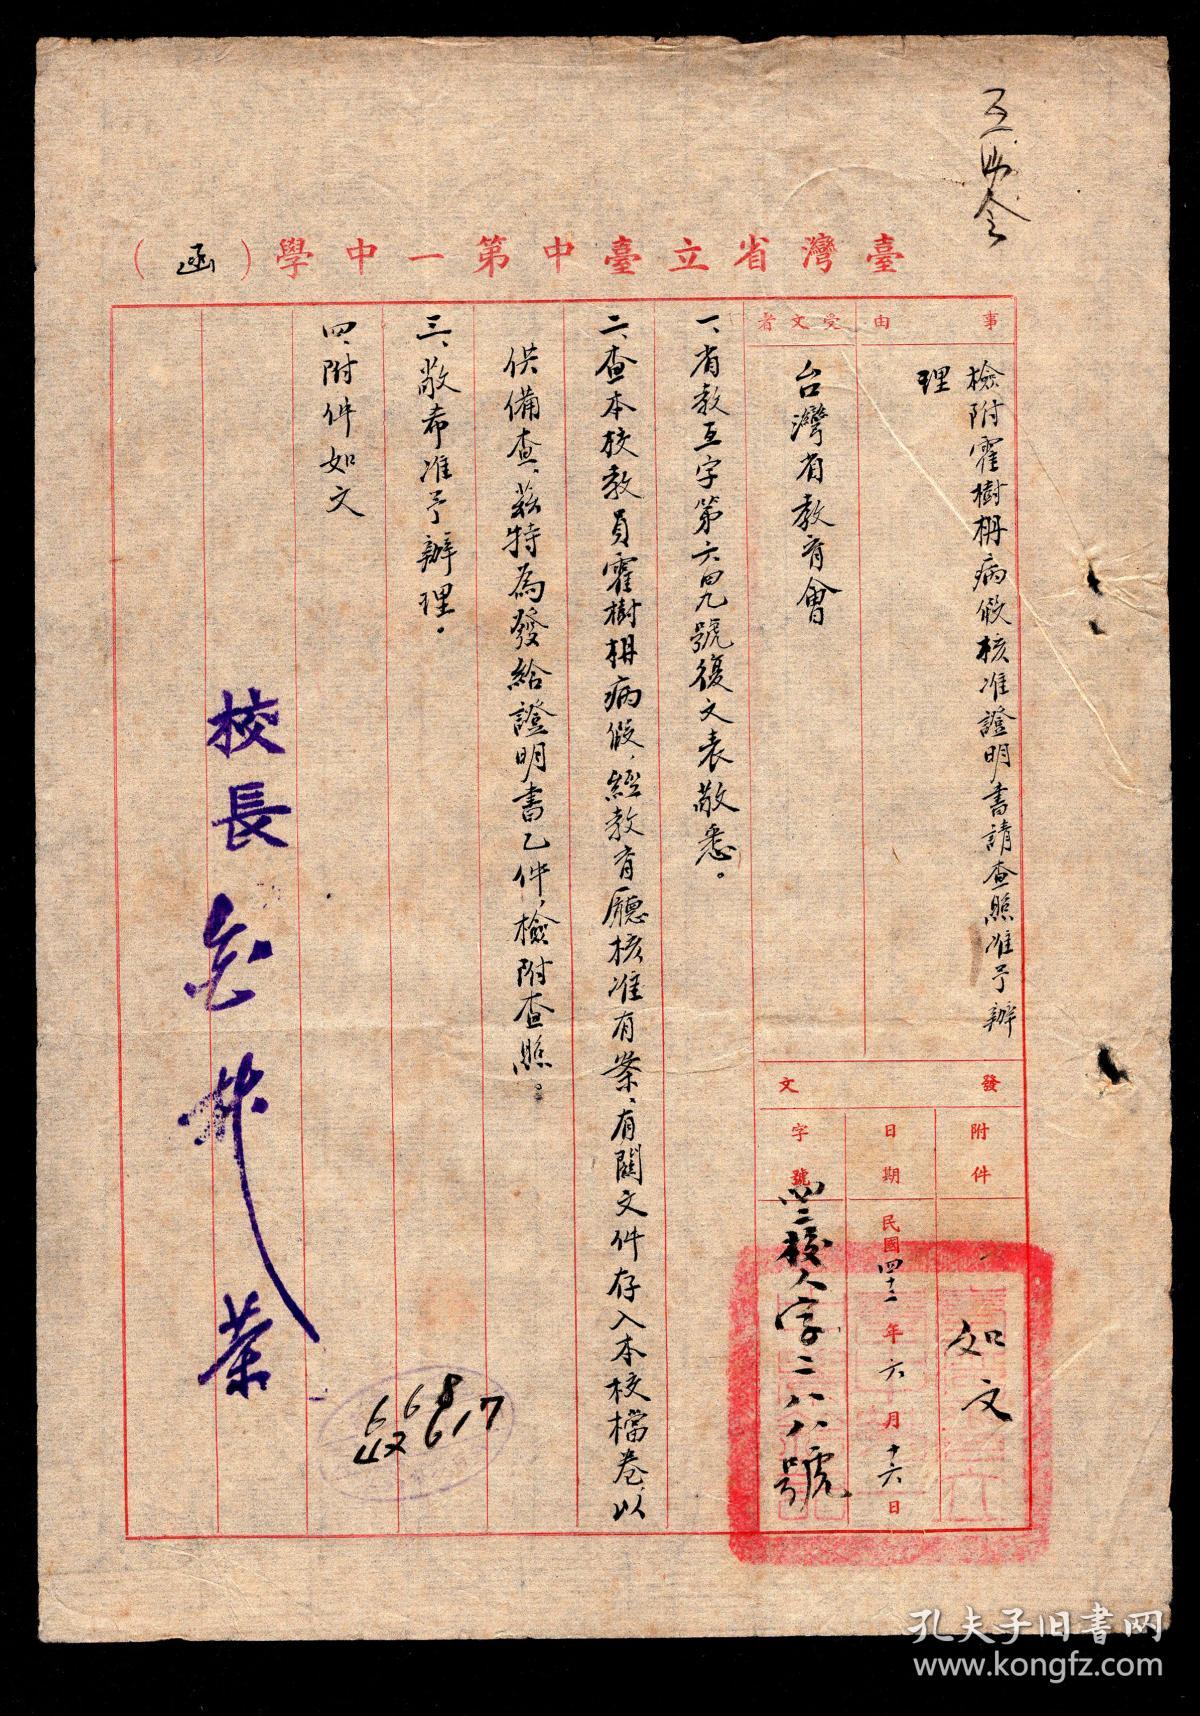 臺灣省立臺中第一中學（函）
事由
檢附霍樹枬病假核准證明書請查照准予辦
理
受文者
台灣省教育會
發文
附件
如文
日期
民國四十二年六月十六日
字號
四二校人字二八八號
一、省教互字第六四九號復文表敬悉。
二、查本校教員霍樹枬病假，經教育廳核准有案、有關文件存入本校檔卷，以
供備查，茲特為發給證明書乙件，檢附查照。
三、敬希准予辦理。
四、附件如文
校長金樹榮
668
42 617
孔夫子旧书网
www.kongfz.com